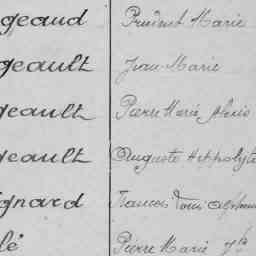 geaud Prudent Marie
geault Jean Marie
geault Pierre Marie Alexis
geault Auguste Hippolyte
gnard Francois Louis Alphonse
lé Pierre Marie